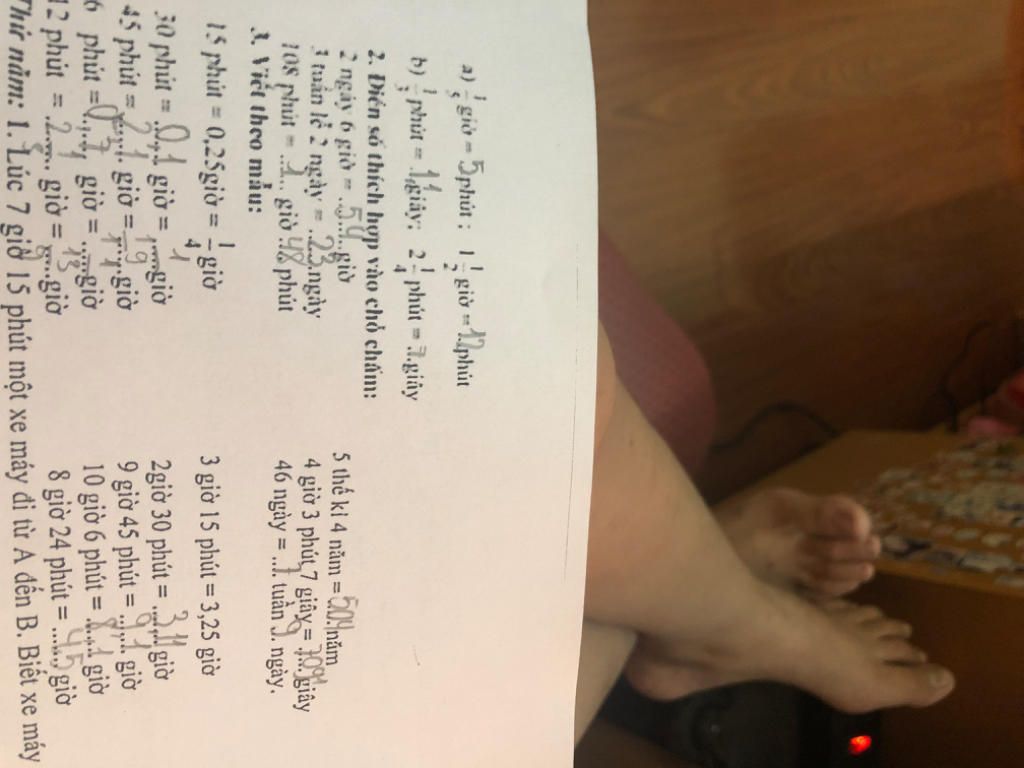 a) 1/5 giờ = 5 phút : 1 1/2 giờ = 12 phút
b) 1/3 phút = 11 giây; 2 1/4 phút = 7 giây
2. Điền số thích hợp vào chỗ chấm:
2 ngày 6 giờ = 54 giờ 5 thế kỉ 4 năm = 504 năm
3 tuần lễ 2 ngày = 23 ngày 4 giờ 3 phút 7 giây = giây
108 phút = 1 giờ 48 phút 46 ngày = tuần ngày.
3. Viết theo mẫu:
15 phút = 0,25giờ = 1/4 giờ 3 giờ 15 phút = 3,25 giờ
30 phút = 0,1 giờ = giờ 2giờ 30 phút = 3,11 giờ
45 phút = 2,1 giờ = giờ 9 giờ 45 phút = 9,1 giờ
6 phút = giờ = giờ 10 giờ 6 phút = 8,1 giờ
12 phút = giờ = giờ 8 giờ 24 phút = 4,5 giờ
Thứ năm: 1. Lúc 7 giờ 15 phút một xe máy đi từ A đến B. Biết xe máy